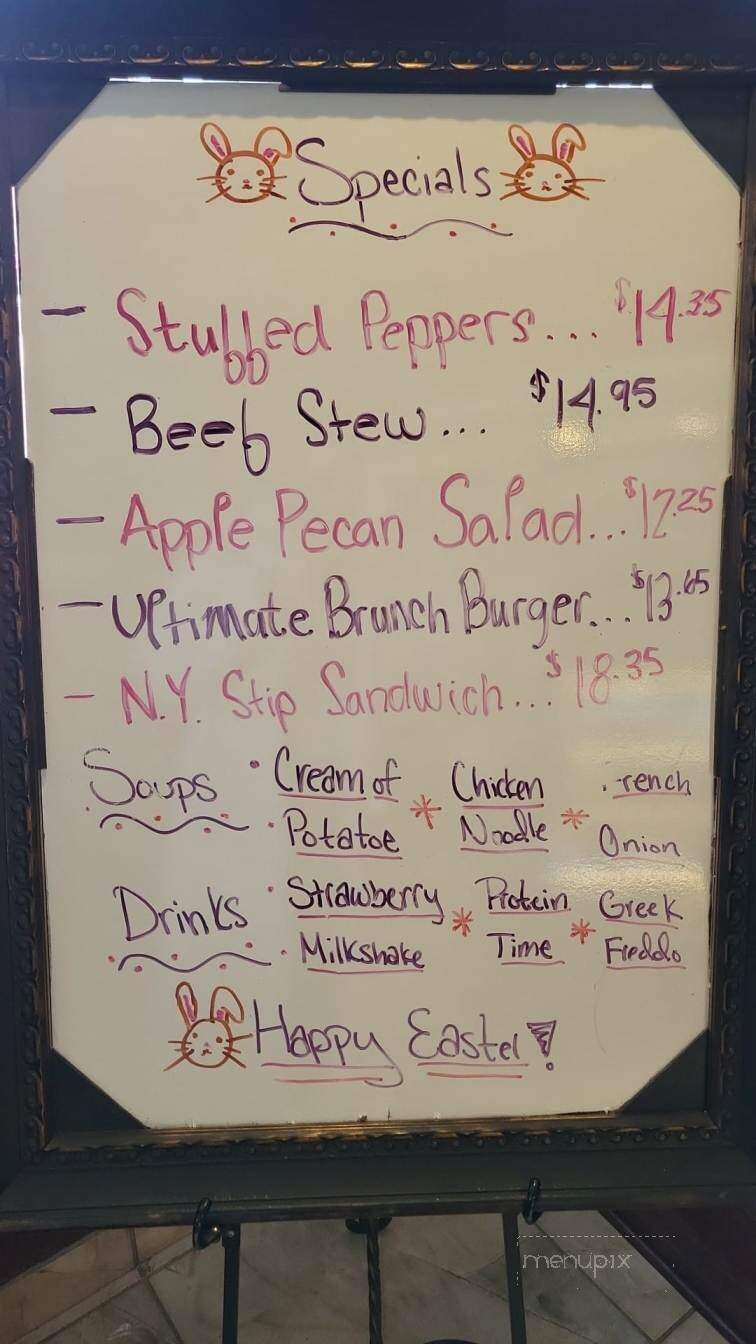 Specials
- Stuffed Peppers... $14.35
- Beef Stew... $14.95
- Apple Pecan Salad... $12.25
- Ultimate Brunch Burger... $13.65
- N.Y. Stip Sandwich... $18.35
Soups • Cream of Potatoe * Chicken Noodle * rench Onion
Drinks • Strawberry Milkshake * Protein Time * Greek Freddo
Happy Easter!
menupix